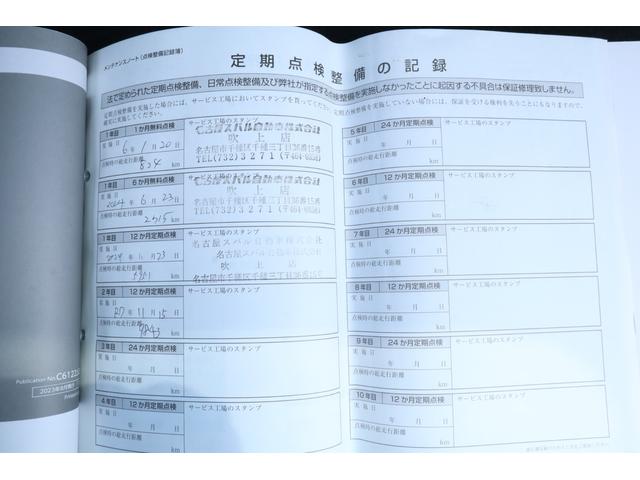 メンテナンスノート(点検整備記録簿)
定期点検整備の記録
法で定められた定期点検整備、日常点検整備及び弊社が指定する点検整備を実施しなかったことに起因する不具合は保証修理致しません。
定期点検整備を実施した場合には、サービス工場においてスタンプを貰ってください。定期点検整備を実施していない場合には、保証を受ける権利を失うことにもなりますので、
確実に実施してください。
1年目 1か月無料点検
サービス工場のスタンプ
実施日 6年1月20日
点検時の総走行距離
824 km
名古屋スバル自動車株式会社
吹上店
名古屋市千種区千種三丁目36番15号
TEL(732)3271(〒464-0858)
1年目 6か月無料点検
サービス工場のスタンプ
実施日 2024年6月23日
点検時の総走行距離
2315 km
名古屋スバル自動車株式会社
吹上店
名古屋市千種区千種三丁目36番15号
TEL(732)3271(〒464-0858)
1年目 12か月定期点検
サービス工場のスタンプ
実施日 2024年 月23日
点検時の総走行距離
km
名古屋スバル自動車株式会社
吹上店
名古屋市千種区千種三丁目36番15号
2年目 12か月定期点検
サービス工場のスタンプ
実施日 R7年11月15日
点検時の総走行距離
9843 km
3年目 24か月定期点検
サービス工場のスタンプ
実施日 年 月 日
点検時の総走行距離
km
4年目 12か月定期点検
サービス工場のスタンプ
実施日 年 月 日
点検時の総走行距離
km
5年目 24か月定期点検
サービス工場のスタンプ
実施日 年 月 日
点検時の総走行距離
km
6年目 12か月定期点検
サービス工場のスタンプ
実施日 年 月 日
点検時の総走行距離
km
7年目 24か月定期点検
サービス工場のスタンプ
実施日 年 月 日
点検時の総走行距離
km
8年目 12か月定期点検
サービス工場のスタンプ
実施日 年 月 日
点検時の総走行距離
km
9年目 24か月定期点検
サービス工場のスタンプ
実施日 年 月 日
点検時の総走行距離
km
10年目 12か月定期点検
サービス工場のスタンプ
実施日 年 月 日
点検時の総走行距離
km
Publication No.
2023年8月発行